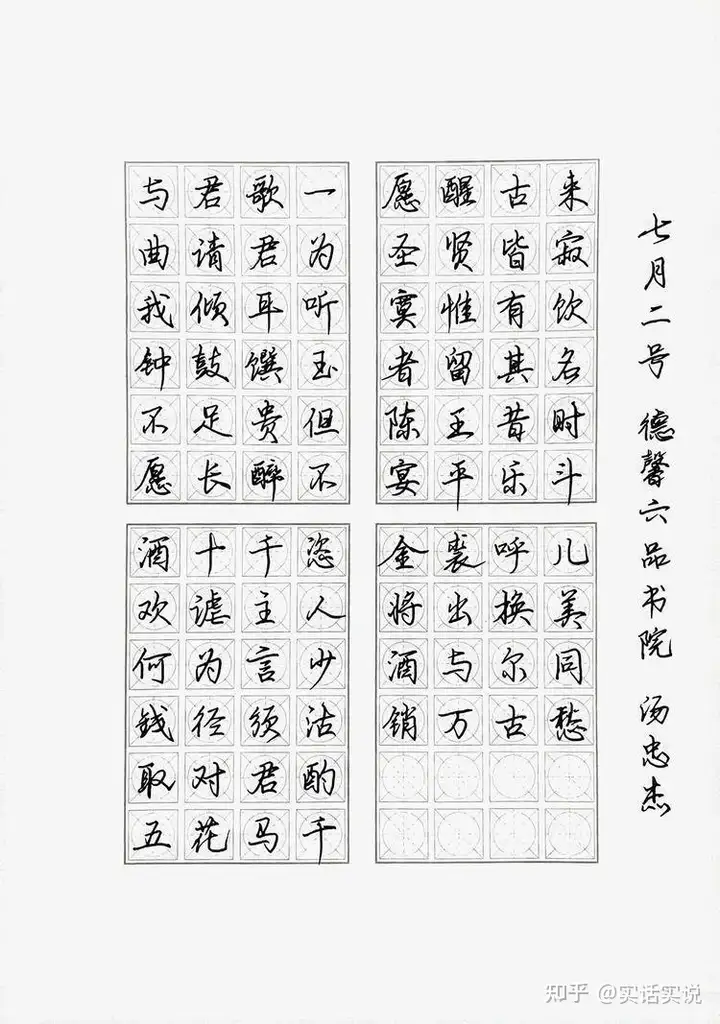 与君歌一
曲请君为
我倾耳听
钟鼓馔玉
不足贵但
愿长醉不
愿醒古来
圣贤皆寂
寞惟有饮
者留其名
陈王昔时
宴平乐斗
酒十千恣
欢谑主人
何为言少
钱径须沽
取对君酌
五花马千
金裘呼儿
将出换美
酒与尔同
销万古愁
七月二号 德馨六品书院 汤忠杰
知乎 @实话实说